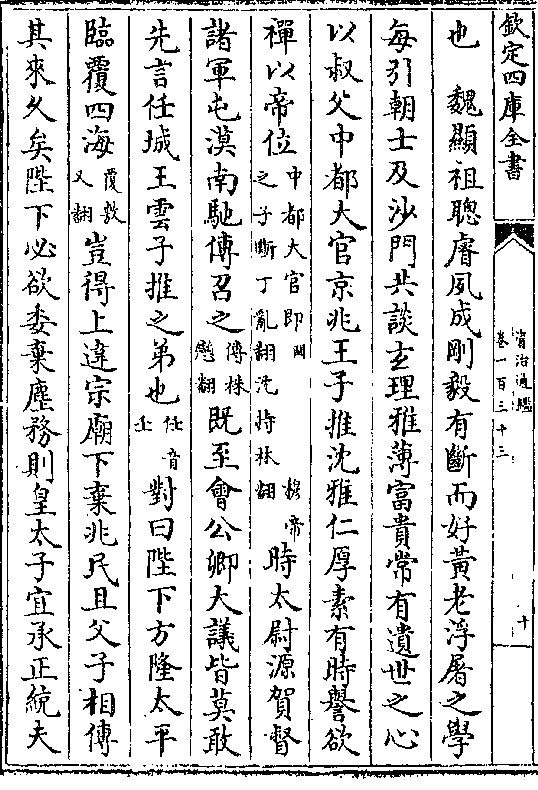 欽定四庫全書
資治通鑑
卷一百三十三
十
也　魏顯祖聰睿夙成剛毅有斷而好黃老浮屠之學
每引朝士及沙門共談玄理雅薄富貴常有遺世之心
以叔父中都大官京兆王子推沈雅仁厚素有時譽欲
禪以帝位中都大官即
之子斷丁亂翻沈持林翻
帝時太尉源賀督
諸軍屯漠南馳傳召之傳株戀翻既至會公卿大議皆莫敢
先言任城王雲子推之弟也任音壬對曰陛下方隆太平
臨覆四海覆敷又翻豈得上違宗廟下棄兆民且父子相傳
其來久矣陛下必欲委棄塵務則皇太子宜承正統夫